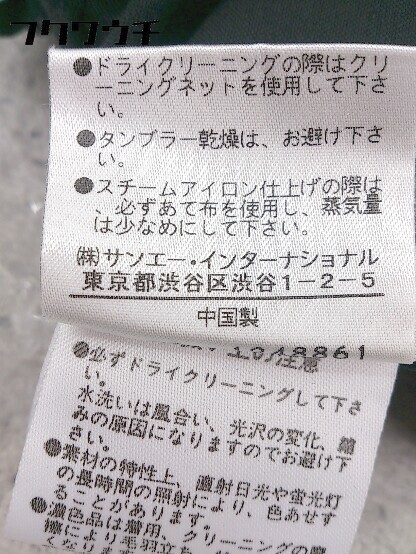 フクウウチ
●ドライクリーニングの際はクリ
ーニングネットを使用して下さ
い。
●タンブラー乾燥は、お避け下さ
い。
●スチームアイロン仕上げの際は
、必ずあて布を使用し、蒸気量
は少なめにして下さい。
㈱サンエー・インターナショナル
東京都渋谷区渋谷1-2-5
中国製
8861
●必ずドライクリーニングして下さ
い。
水洗いは風合い、光沢の変化、縮
みの原因になりますのでお避け下
さい。
●素材の特性上、直射日光や蛍光灯
の長時間の照射により、色あせす
ることがあります。
●濃色品は着用、クリーニングの摩
擦により毛羽立ち